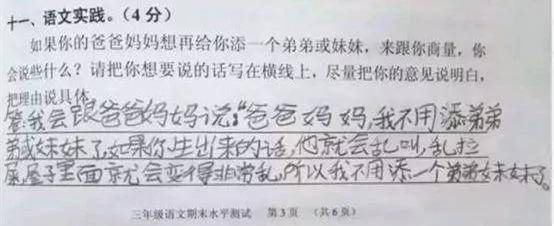 十一、语文实践。（4分）
如果你的爸爸妈妈想再给你添一个弟弟或妹妹，来跟你商量，你
会说些什么？请把你想要说的话写在横线上，尽量把你的意见说明白，
把理由说具体。
答:我会跟爸爸妈妈说:"爸爸妈妈,我不用添弟弟
弟或妹妹了,如果你生出来的话,他就会乱叫,乱拉
屎,屋子里面就会变得非常乱,所以我不用添一个弟弟妹妹了。
三年级语文期末水平测试 第3页 （共6页）